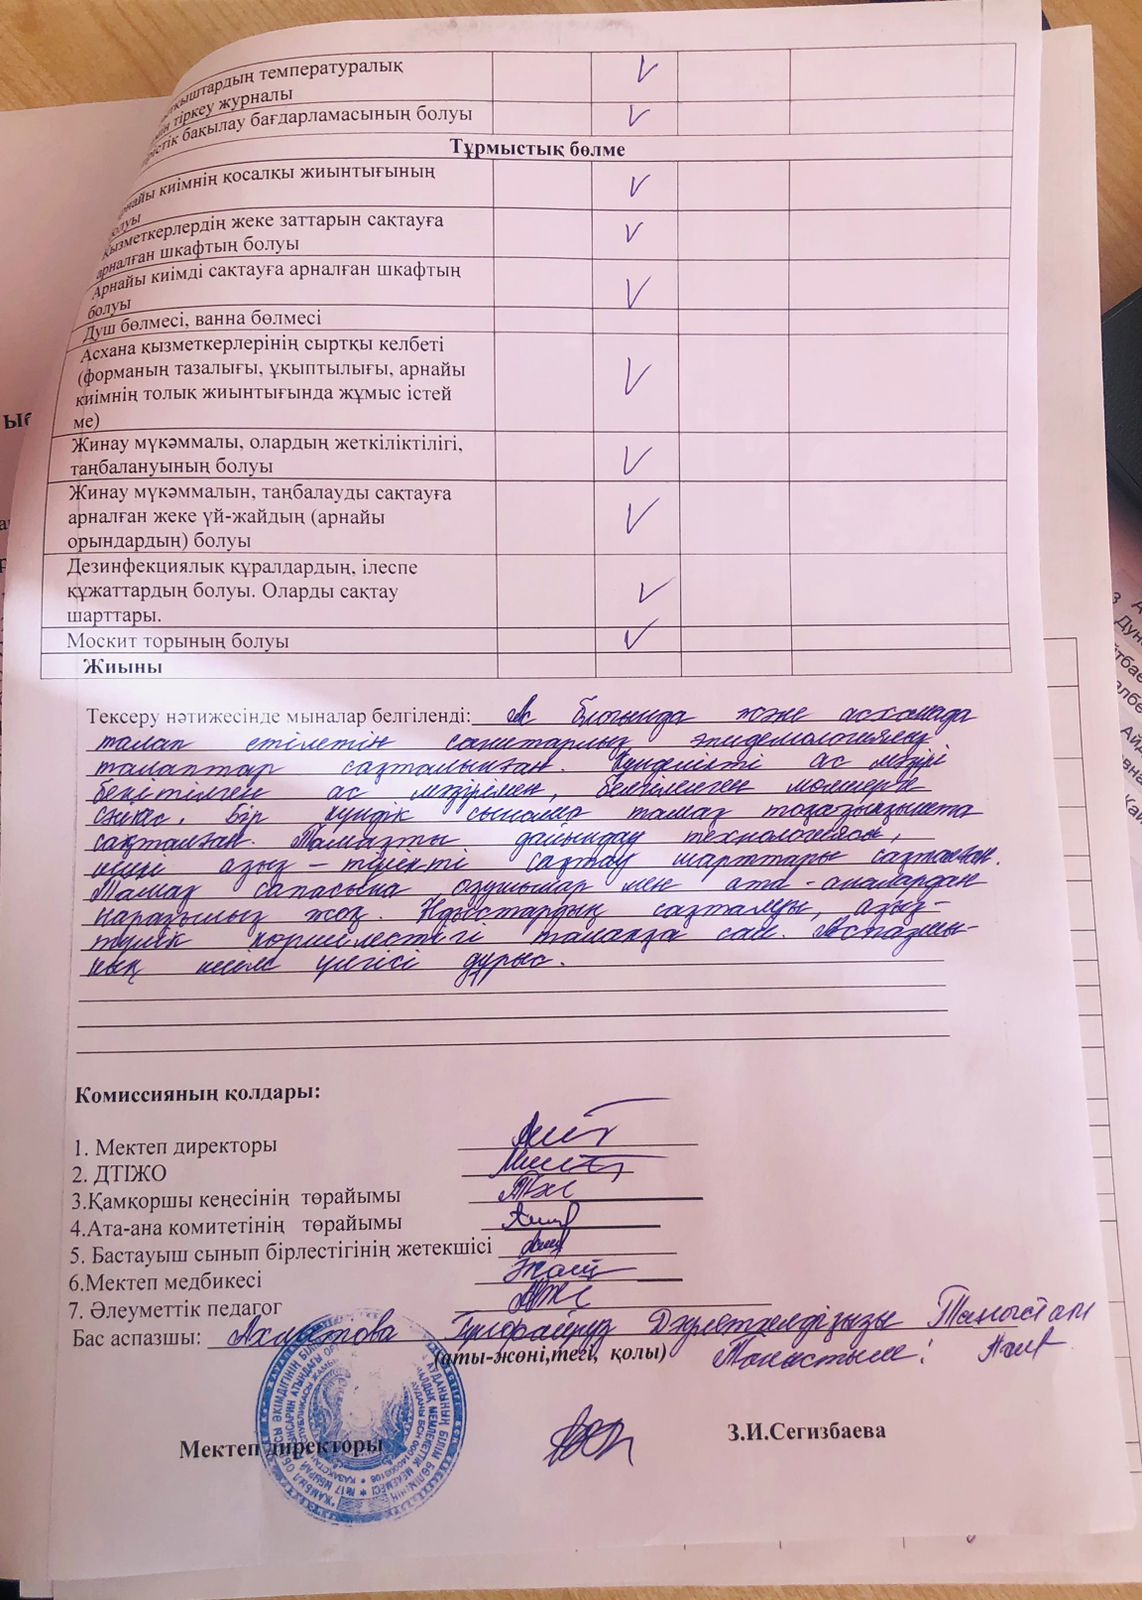 температуралық
тіркеу журналы
бақылау бағдарламасының болуы
Тұрмыстық бөлме
киімнің қосалқы жиынтығының
болуы
Қызметкерлердің жеке заттарын сақтауға
арналған шкафтың болуы
Арнайы киімді сақтауға арналған шкафтың
болуы
Душ бөлмесі, ванна бөлмесі
Асхана қызметкерлерінің сыртқы келбеті
(форманың тазалығы, ұқыптылығы, арнайы
киімнің толық жиынтығында жұмыс істей
ме)
Жинау мүкәммалы, олардың жеткіліктілігі,
таңбалануының болуы
Жинау мүкәммалын, таңбалауды сақтауға
арналған жеке үй-жайдың (арнайы
орындардың) болуы
Дезинфекциялық құралдардың, ілеспе
құжаттардың болуы. Оларды сақтау
шарттары.
Москит торының болуы
Жиыны
Тексеру нәтижесінде мыналар белгіленді: Ас блогында және асханада
талап етілетін санитарлық эпидемологиялық
талаптар сақталынған. Күнделікті ас мәзірі
бекітілген ас мәзірімен, белгіленген мөлшерге
сәйкес. Бір күндік сынама тамақ тоңазытқышта
сақталған. Тамақты дайындау технологиясы,
азық-түлікті сақтау шарттары сақталған.
Тамақ сапасына оқушылар мен ата-аналардан
наразылық жоқ. Ыдыстардың сақталуы, азық-
түлік көршілестігі талапқа сай. Аспазшы-
ның киім үлгісі дұрыс.
Комиссияның қолдары:
1. Мектеп директоры
2. ДТІЖО
3.Қамқоршы кеңесінің төрайымы
4.Ата-ана комитетінің төрайымы
5. Бастауыш сынып бірлестігінің жетекшісі
6.Мектеп медбикесі
7. Әлеуметтік педагог
Бас аспазшы: Ахметова Таныстым
(аты-жөні,тегі, қолы) Таныстым:
Мектеп директоры З.И.Сегизбаева